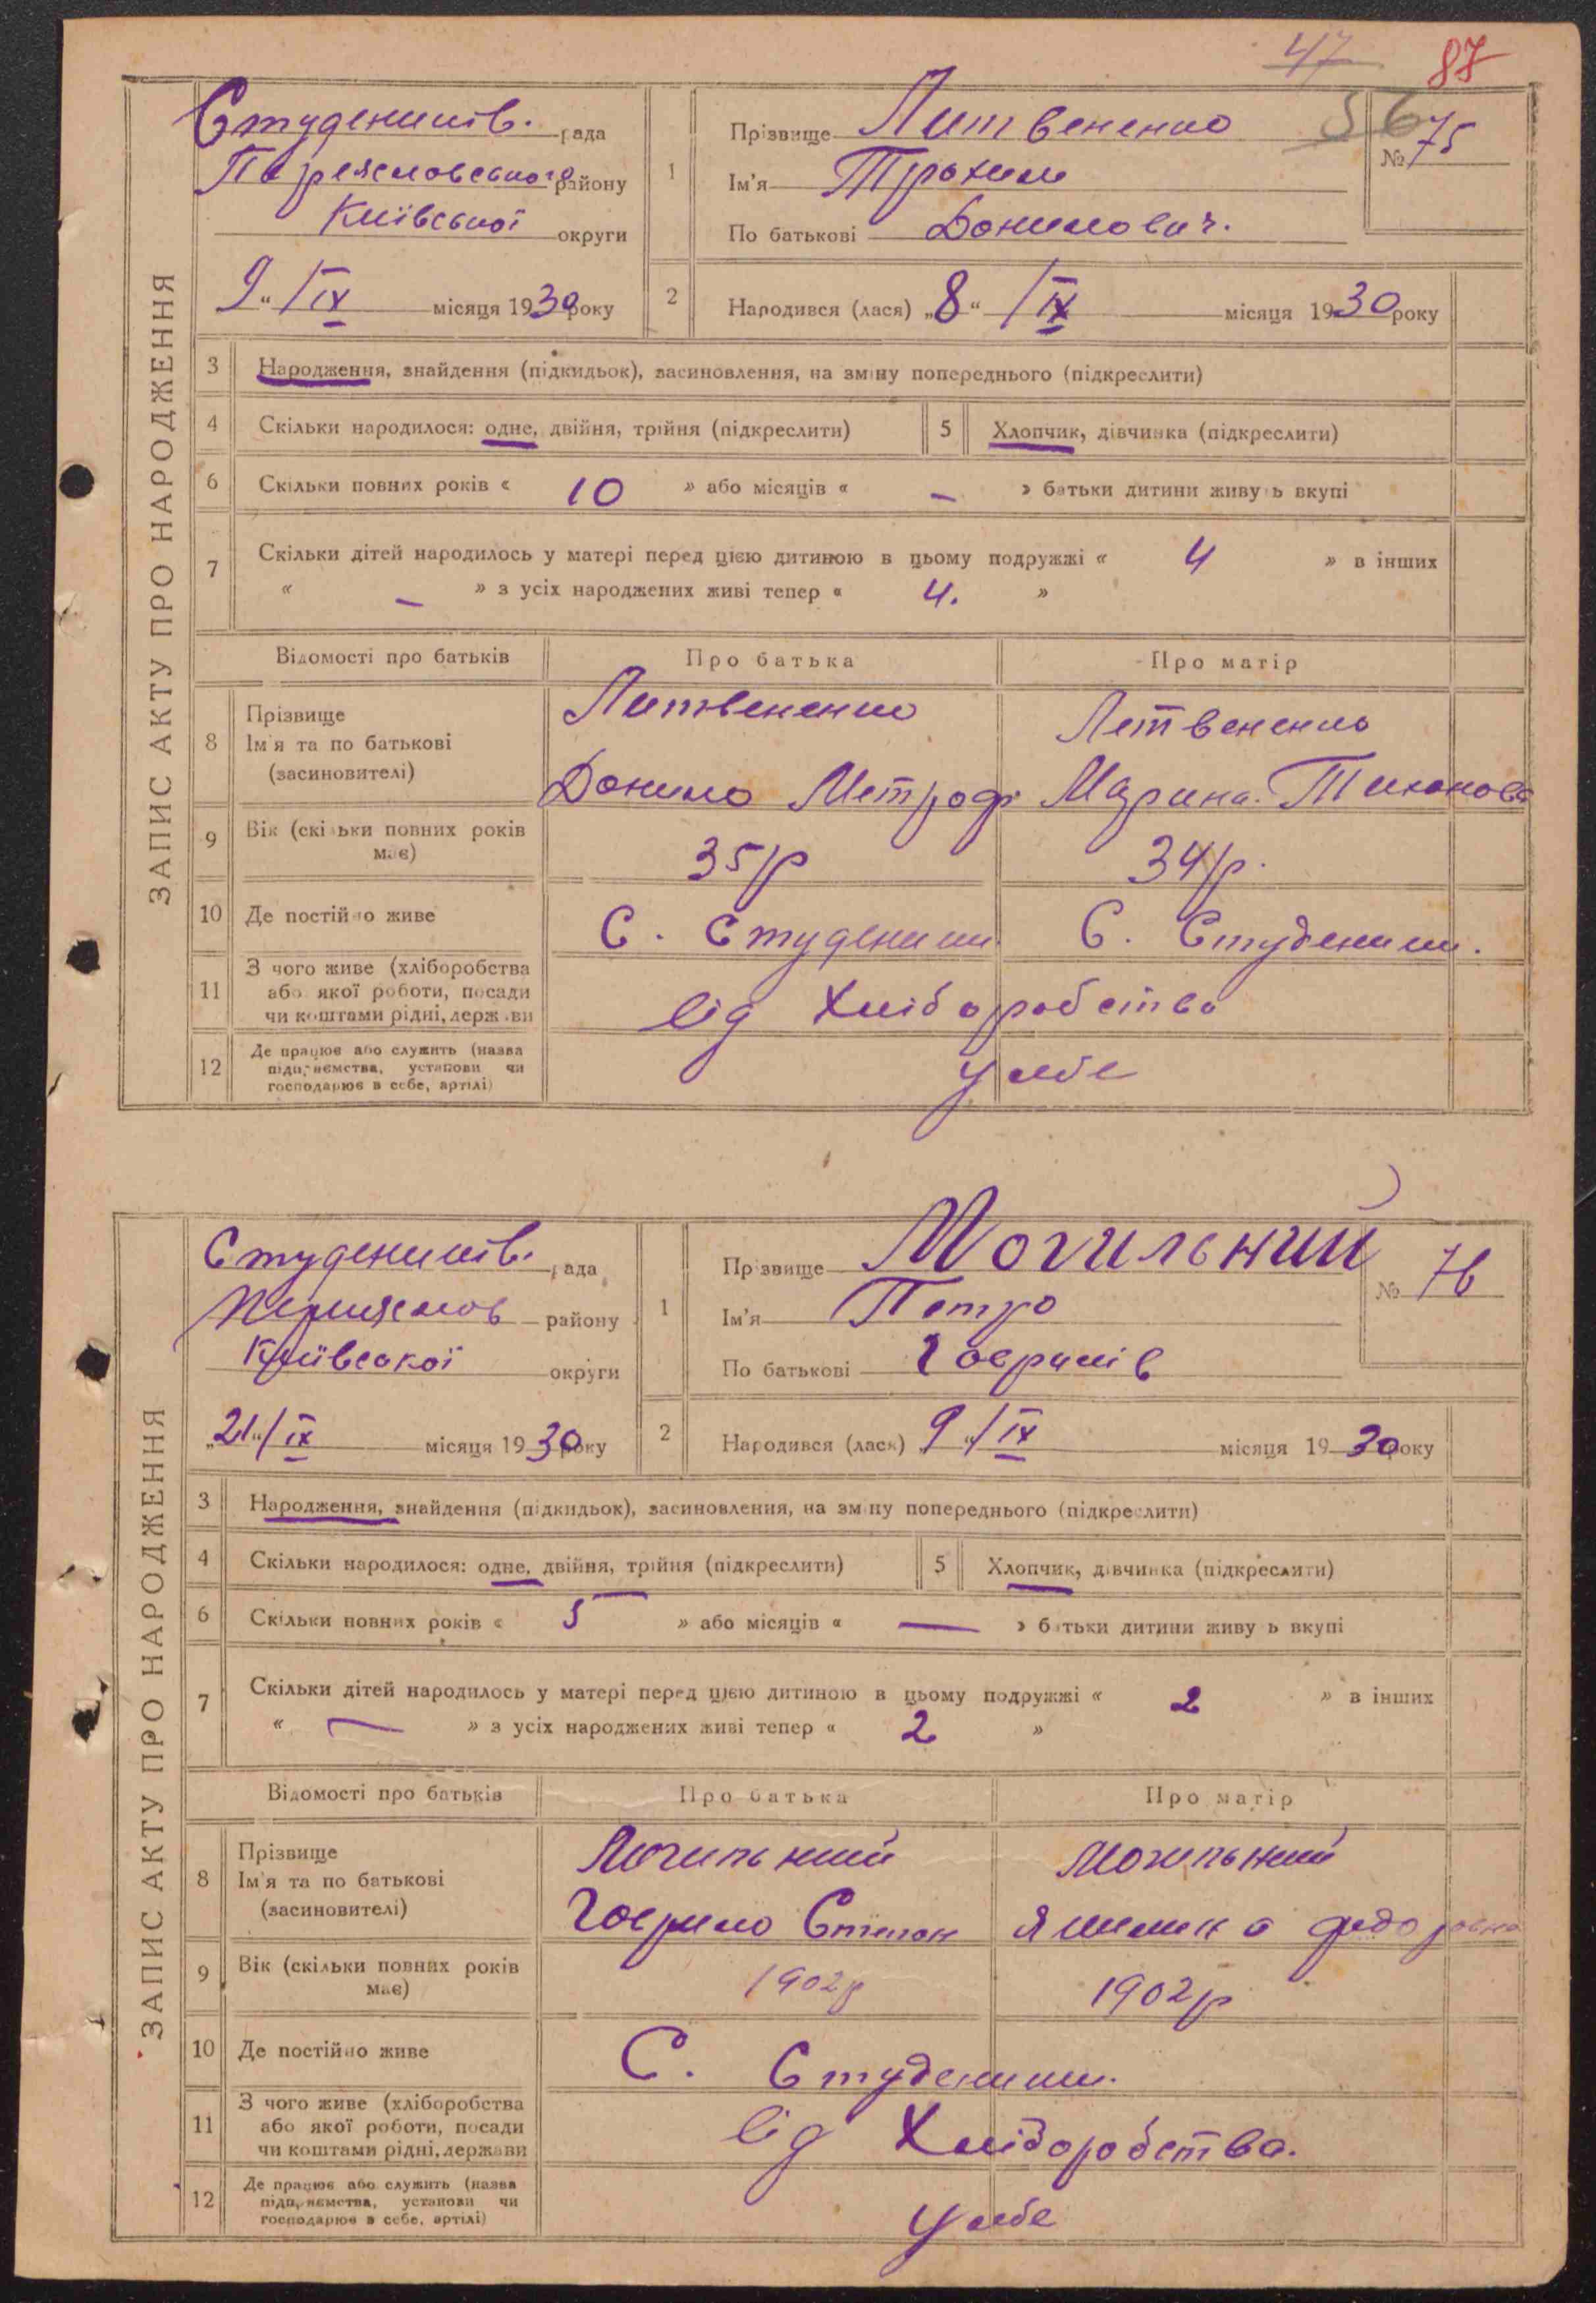 47 87
56
ЗАПИС АКТУ ПРО НАРОДЖЕННЯ
Студеників. рада
району
Київської округи
9 " / IX місяця 1930 року
1 Прізвище Литвененко
Ім'я Трохим
По батькові Данилович.
№ 75
2 Народився (лася) „8" / IX місяця 1930 року
3 Народження, знайдення (підкидьок), засиновлення, на зміну попереднього (підкреслити)
4 Скільки народилося: одне, двійня, трійня (підкреслити) 5 Хлопчик, дівчинка (підкреслити)
6 Скільки повних років « 10 » або місяців « — » батьки дитини живуть вкупі
7 Скільки дітей народилось у матері перед цією дитиною в цьому подружжі « 4 » в інших
« — » з усіх народжених живі тепер « 4. »
Відомості про батьків Про батька Про матір
8 Прізвище Литвененко Летвененко
Ім'я та по батькові
(засиновителі) Данило Метроф Марина. Тихонова
9 Вік (скільки повних років
має) 35/р 34/р.
10 Де постійно живе С. Студеники С. Студеники.
11 З чого живе (хліборобства
або якої роботи, посади
чи коштами рідні, держави від Хліборобства
12 Де працює або служить (назва
підприємства, установи чи
господарює в себе, артілі) у себе
ЗАПИС АКТУ ПРО НАРОДЖЕННЯ
Студеників. рада
району
Київської округи
„21" / IX місяця 1930 року
1 Прізвище Могильний
Ім'я Петро
По батькові Гаврилів
№ 76
2 Народився (лася) 9 " / IX місяця 1930 року
3 Народження, знайдення (підкидьок), засиновлення, на зміну попереднього (підкреслити)
4 Скільки народилося: одне, двійня, трійня (підкреслити) 5 Хлопчик, дівчинка (підкреслити)
6 Скільки повних років « 5 » або місяців « — » батьки дитини живуть вкупі
7 Скільки дітей народилось у матері перед цією дитиною в цьому подружжі « 2 » в інших
« — » з усіх народжених живі тепер « 2 »
Відомості про батьків Про батька Про матір
8 Прізвище Могильний Могильний
Ім'я та по батькові
(засиновителі) Гаврило Степан Федоровна
9 Вік (скільки повних років
має) 1902р 1902р
10 Де постійно живе С. Студеники.
11 З чого живе (хліборобства
або якої роботи, посади
чи коштами рідні, держави від Хліборобства.
12 Де працює або служить (назва
підприємства, установи чи
господарює в себе, артілі) у себе